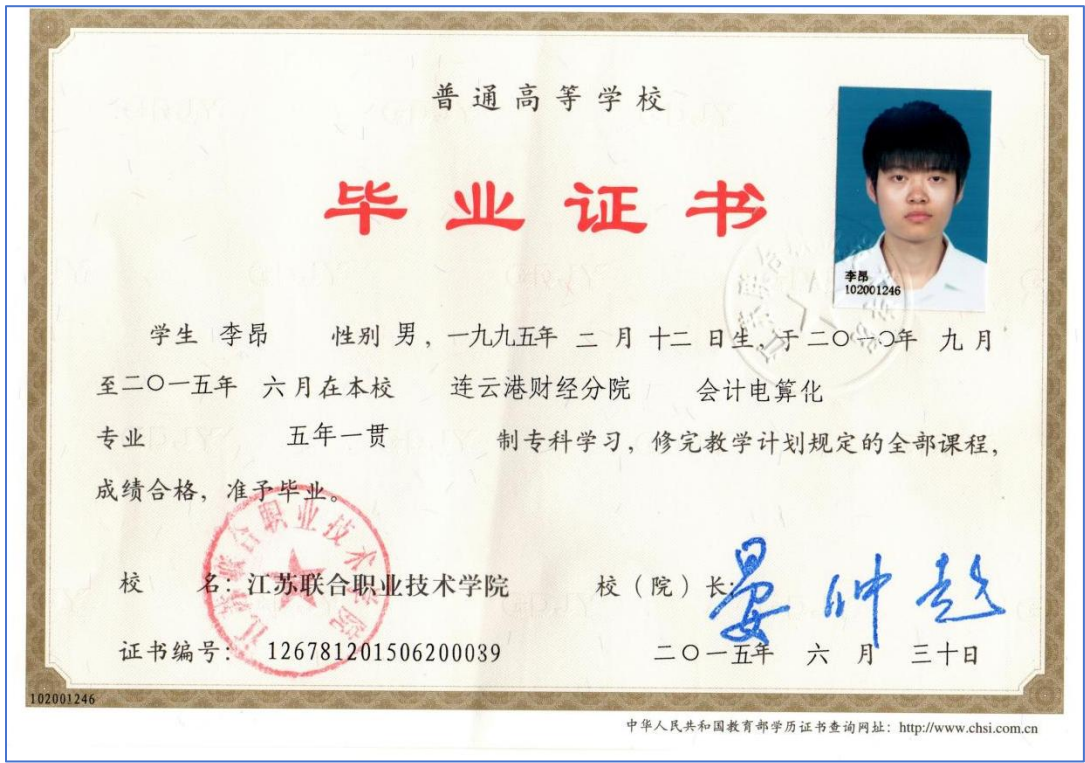 普通高等学校
毕业证书
李昂
102001246
学生 李昂 性别 男，一九九五年 二 月 十二 日生，于二〇一〇年 九 月
至二〇一五年 六 月在本校 连云港财经分院 会计电算化
专业 五年一贯 制专科学习，修完教学计划规定的全部课程，
成绩合格，准予毕业。
江苏联合职业技术学院
校 名：江苏联合职业技术学院 校（院）长：
证书编号：126781201506200039 二〇一五年 六 月 三十日
102001246
中华人民共和国教育部学历证书查询网址：http://www.chsi.com.cn